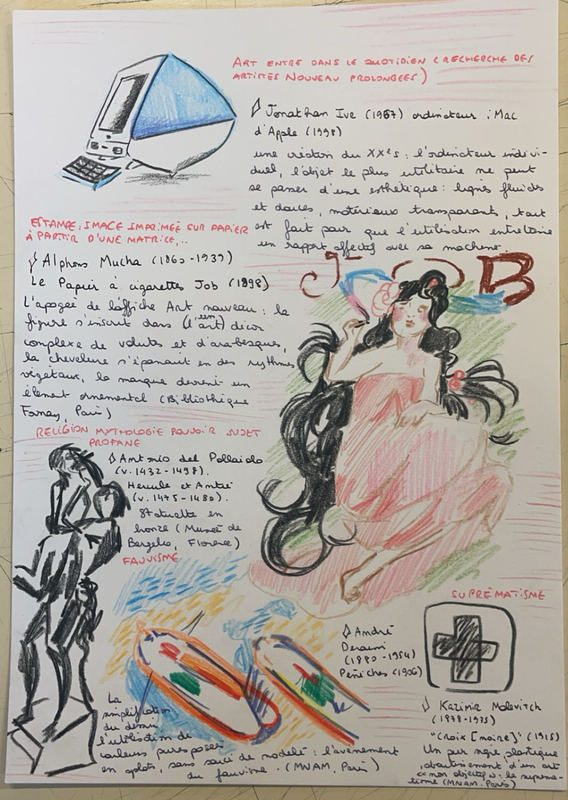 ART ENTRE DANS LE QUOTIDIEN (RECHERCHE DES
ARTISTES NOUVEAU PROLONGEES)
Jonathan Ive (1967) ordinateur iMac
d'Apple (1998)
une création du XXe s : l'ordinateur indivi-
duel, l'objet le plus utilitaire ne peut
se passer d'une esthétique : lignes fluides
et douces, matériaux transparents, tout
est fait pour que l'utilisation entretienne
un rapport affectif avec sa machine.
ESTAMPE, IMAGE IMPRIMÉE SUR PAPIER
À PARTIR D'UNE MATRICE,..
Alphons Mucha (1860-1939)
Le Papier à cigarettes Job (1898)
L'apogée de l'affiche Art nouveau : la
figure s'inscrit dans un décor
complexe de volutes et d'arabesques,
la chevelure s'épanouit en des rythmes
végétaux, la marque devient un
élément ornemental (Bibliothèque
Forney, Paris)
JOB
RELIGION MYTHOLOGIE POUVOIR SUJET
PROFANE
Antonio del Pollaiolo
(v. 1432-1498).
Hercule et Antée
(v. 1475-1480).
Statuette en
bronze (Musée de
Bargello, Florence)
FAUVISME
André
Derain
(1880-1954)
Péniches (1906)
La
simplification
du dessin
l'utilisation de
couleurs pures posées
en aplats, sans souci de modelé : l'avènement
du fauvisme. (MNAM, Paris)
SUPRÉMATISME
Kazimir Malevitch
(1878-1935)
"Croix [noire]" (1915)
Un pur signe plastique
aboutissement d'un art
non objectif : le supréma-
tisme (MNAM, Paris)